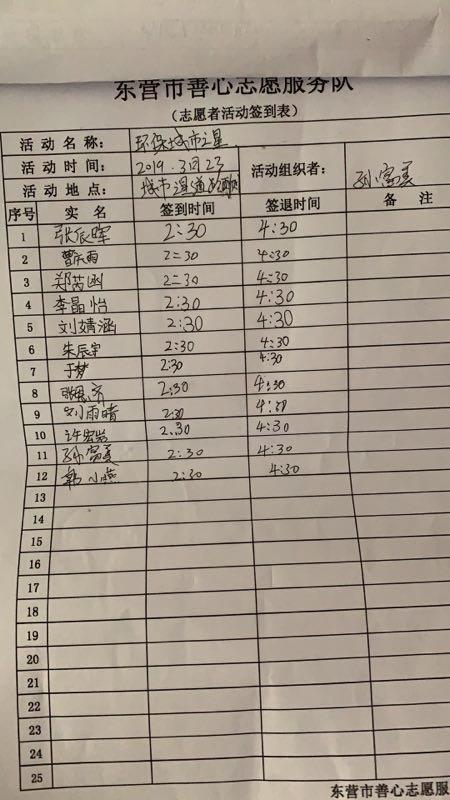 东营市善心志愿服务队
（志愿者活动签到表）
活动名称： 环保城市之星
活动时间： 2019.3月23 活动组织者： 孙富美
活动地点： 城市湿道
序号 实名 签到时间 签退时间 备注
1 张辰晖 2:30 4:30
2 曹庆雨 2:30 4:30
3 郑茜凶 2:30 4:30
4 李晶怡 2:30 4:30
5 刘婧涵 2:30 4:30
6 朱辰宇 2:30 4:30
7 于梦 2:30 4:30
8 张恩齐 2:30 4:30
9 刘雨晴 2:30 4:30
10 许宏岩 2:30 4:30
11 孙富美 2:30 4:30
12 韩小燕 2:30 4:30
13
14
15
16
17
18
19
20
21
22
23
24
25
东营市善心志愿服